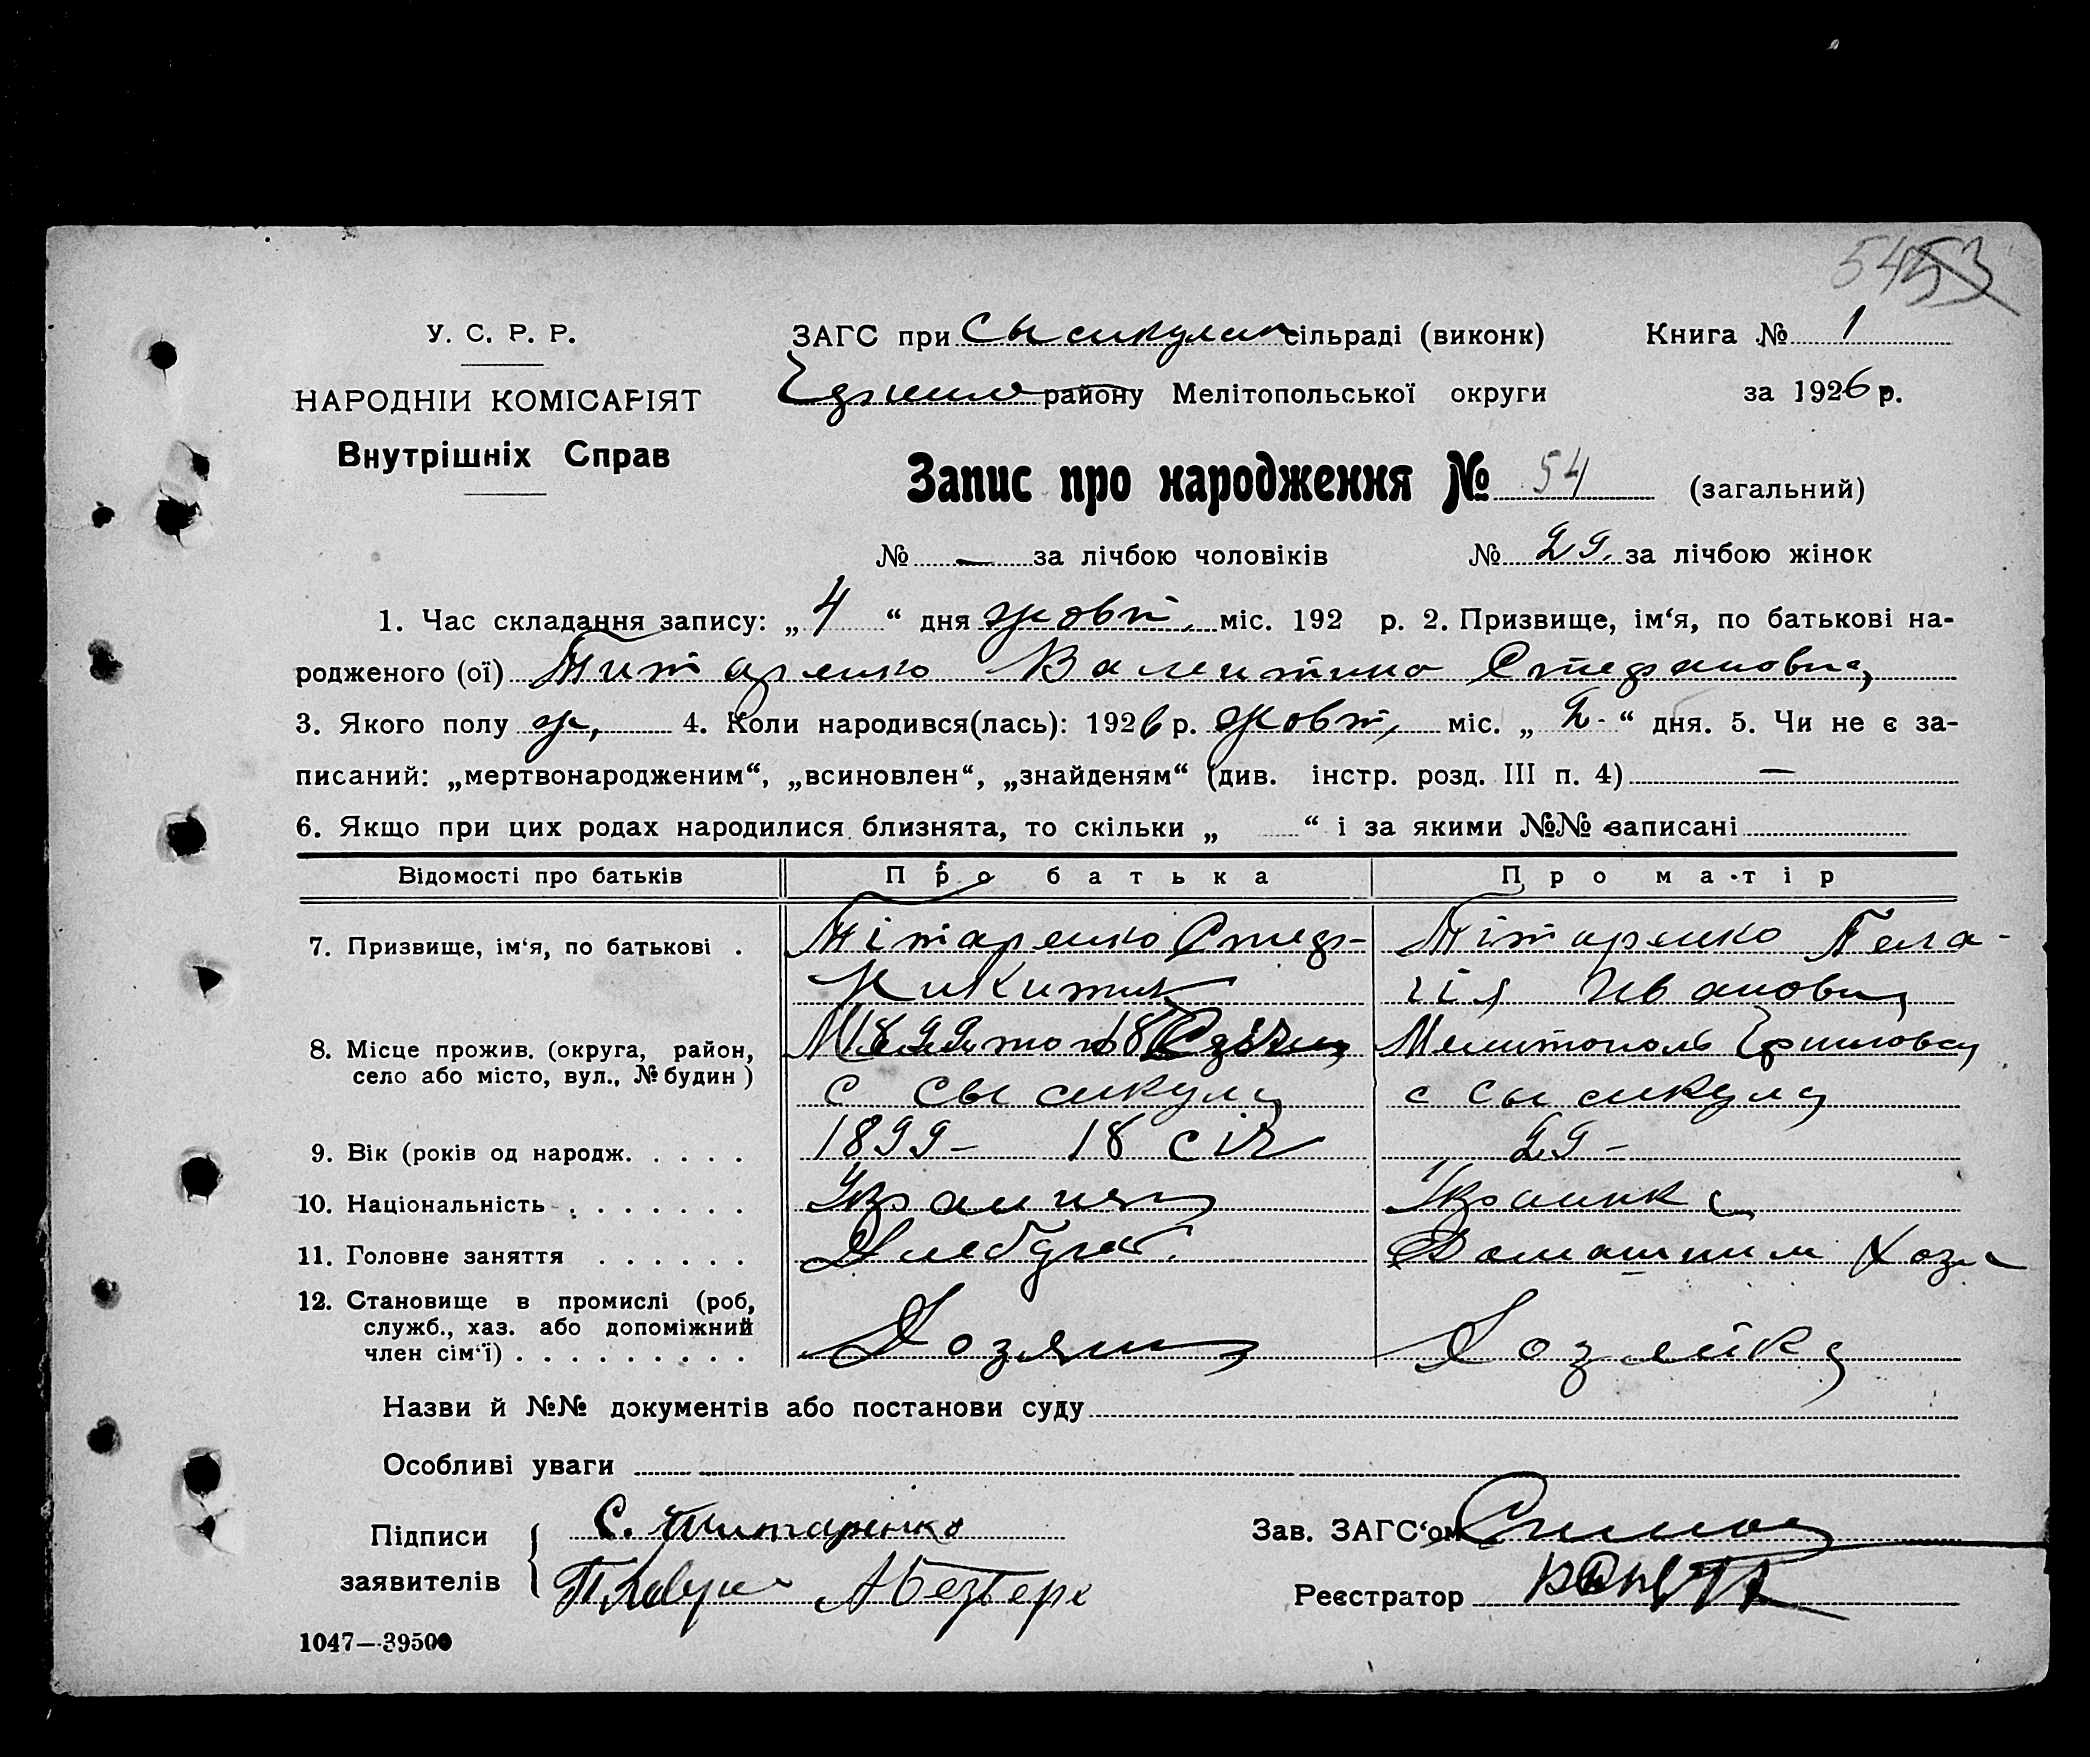 54 53
У. С. Р. Р.
НАРОДНІЙ КОМІСАРІЯТ
Внутрішніх Справ
ЗАГС при Сысикулак сільраді (виконк) Книга № 1
району Мелітопольської округи за 1926 р.
Запис про народження № 54 (загальний)
№ — за лічбою чоловіків № 29. за лічбою жінок
1. Час складання запису: „ 4 “ дня жовт. міс. 192 р. 2. Призвище, ім‘я, по батькові на-
родженого (ої) Титаренко Валентина Степановна
3. Якого полу ж, 4. Коли народився(лась): 1926 р. жовт, міс. „ 2 - “ дня. 5. Чи не є за-
писаний: „мертвонародженим“, „всиновлен“, „знайденям“ (див. інстр. розд. III п. 4) —
6. Якщо при цих родах народилися близнята, то скільки „ “ і за якими №№ записані
Відомості про батьків Про батька Про матір
7. Призвище, ім‘я, по батькові . Тітаренко Тітаренко Пела-
Никитич гія Ивановна
8. Місце прожив. (округа, район, Мелитополь
село або місто, вул., № будин ) с Сысикула с Сысикула
9. Вік (років од народж. . . . . 1899 - 18 січ 29 -
10. Національність . . . . . . . Украинец Украинка
11. Головне заняття . . . . . . Хлебороб. Домашним хозя
12. Становище в промислі (роб,
служб., хаз. або допоміжний
член сім‘ї) . . . . . . . . . Хозяин Хозяйка
Назви й №№ документів або постанови суду
Особливі уваги
Підписи
заявителів
С. Титаренко
Зав. ЗАГС‘ом
Реєстратор
1047—39500